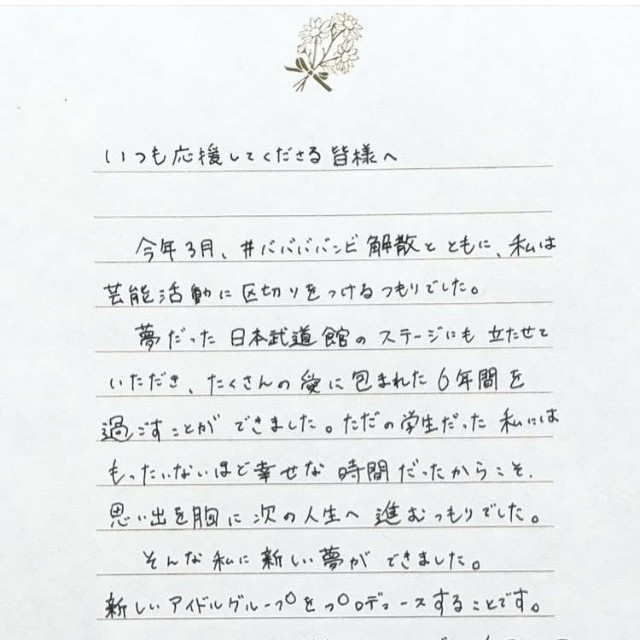 いつも応援してくださる皆様へ
今年3月、#ババババンビ解散とともに、私は
芸能活動に区切りをつけるつもりでした。
夢だった日本武道館のステージにも立たせて
いただき、たくさんの愛に包まれた6年間を
過ごすことができました。ただの学生だった私には
もったいないほど幸せな時間だったからこそ、
思い出を胸に次の人生へ進むつもりでした。
そんな私に新しい夢ができました。
新しいアイドルグループをプロデュースすることです。